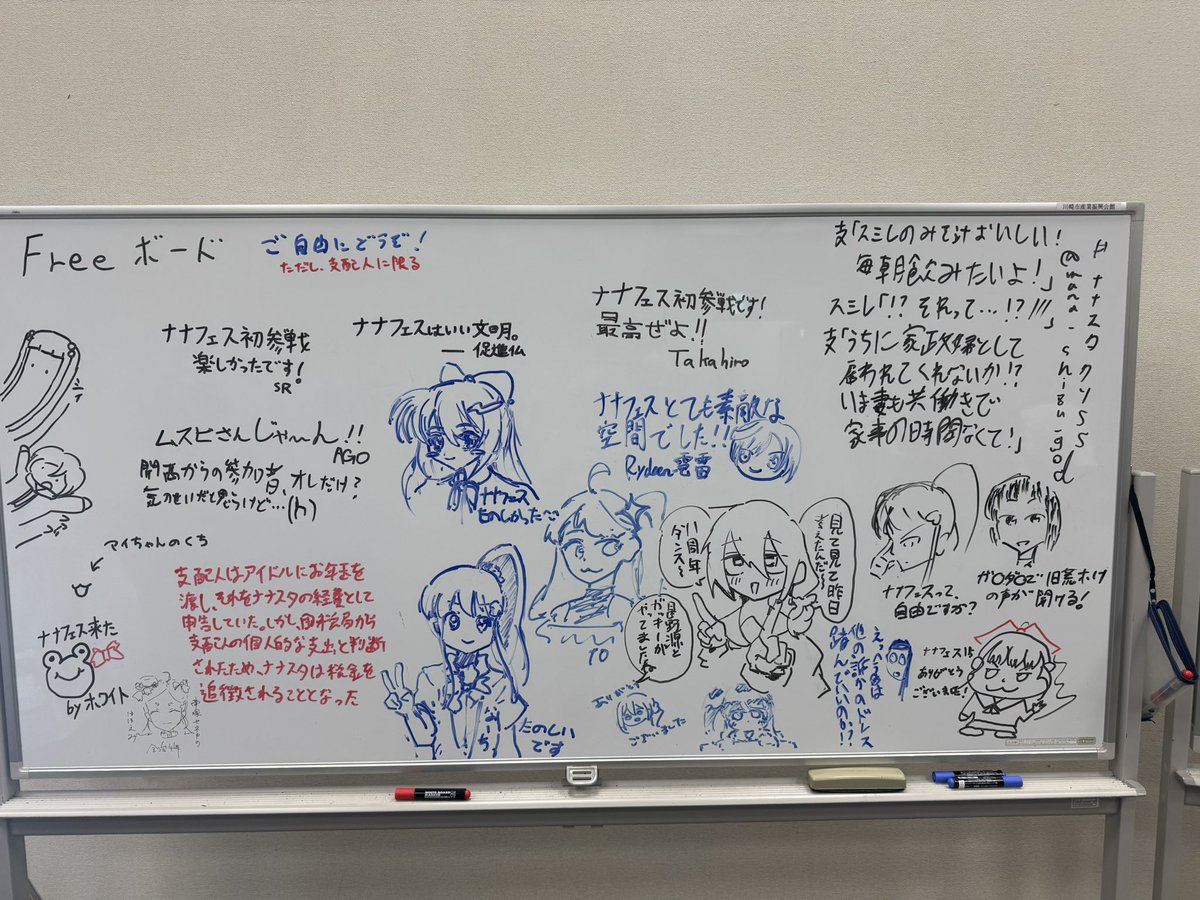 川崎市産業振興会館
Free ボード
ご自由にどうぞ!
ただし、支配人に限る
ナナフェス初参戦
楽しかったです!
SR
ムスビさんじゃ〜ん!!
AGO
関西からの参加者、オレだけ?
気のせいだと思うけど…(h)
マイちゃんのくち
ナナフェス来た
by ホワイト
支配人はアイドルにお年玉を
渡し、それをナナスタの経費として
申告していた。しかし国税局から
支配人の個人的な支出と判断
されたため、ナナスタは税金を
追徴されることとなった
ナナフェスはいい文明。
― 促進仏
ナナフェス
たのしかった
たのしい
です
ナナフェス初参戦です!
最高ぜよ!!
Takahiro
ナナフェスとても素敵な
空間でした!!
Rydeen 雲雷
八周年
ダンス〜
見て見て昨日
星野源と
ガッキーが
やってましたね
ありがとう
ございました
支「スミレのみそ汁おいしい!
毎朝飲みたいよ!」
スミレ「!? それって…!?///」
支「うちに家政婦として
雇われてくれないか!?
いま妻も共働きで
家事の時間なくて!」
ナナフェスって、
自由ですか?
ガロガロで旧荒木げ
の声が聞ける!
他の誰かのドレス
踏んでいいのか!?
ナナフェス15
ありがとう
ございます!